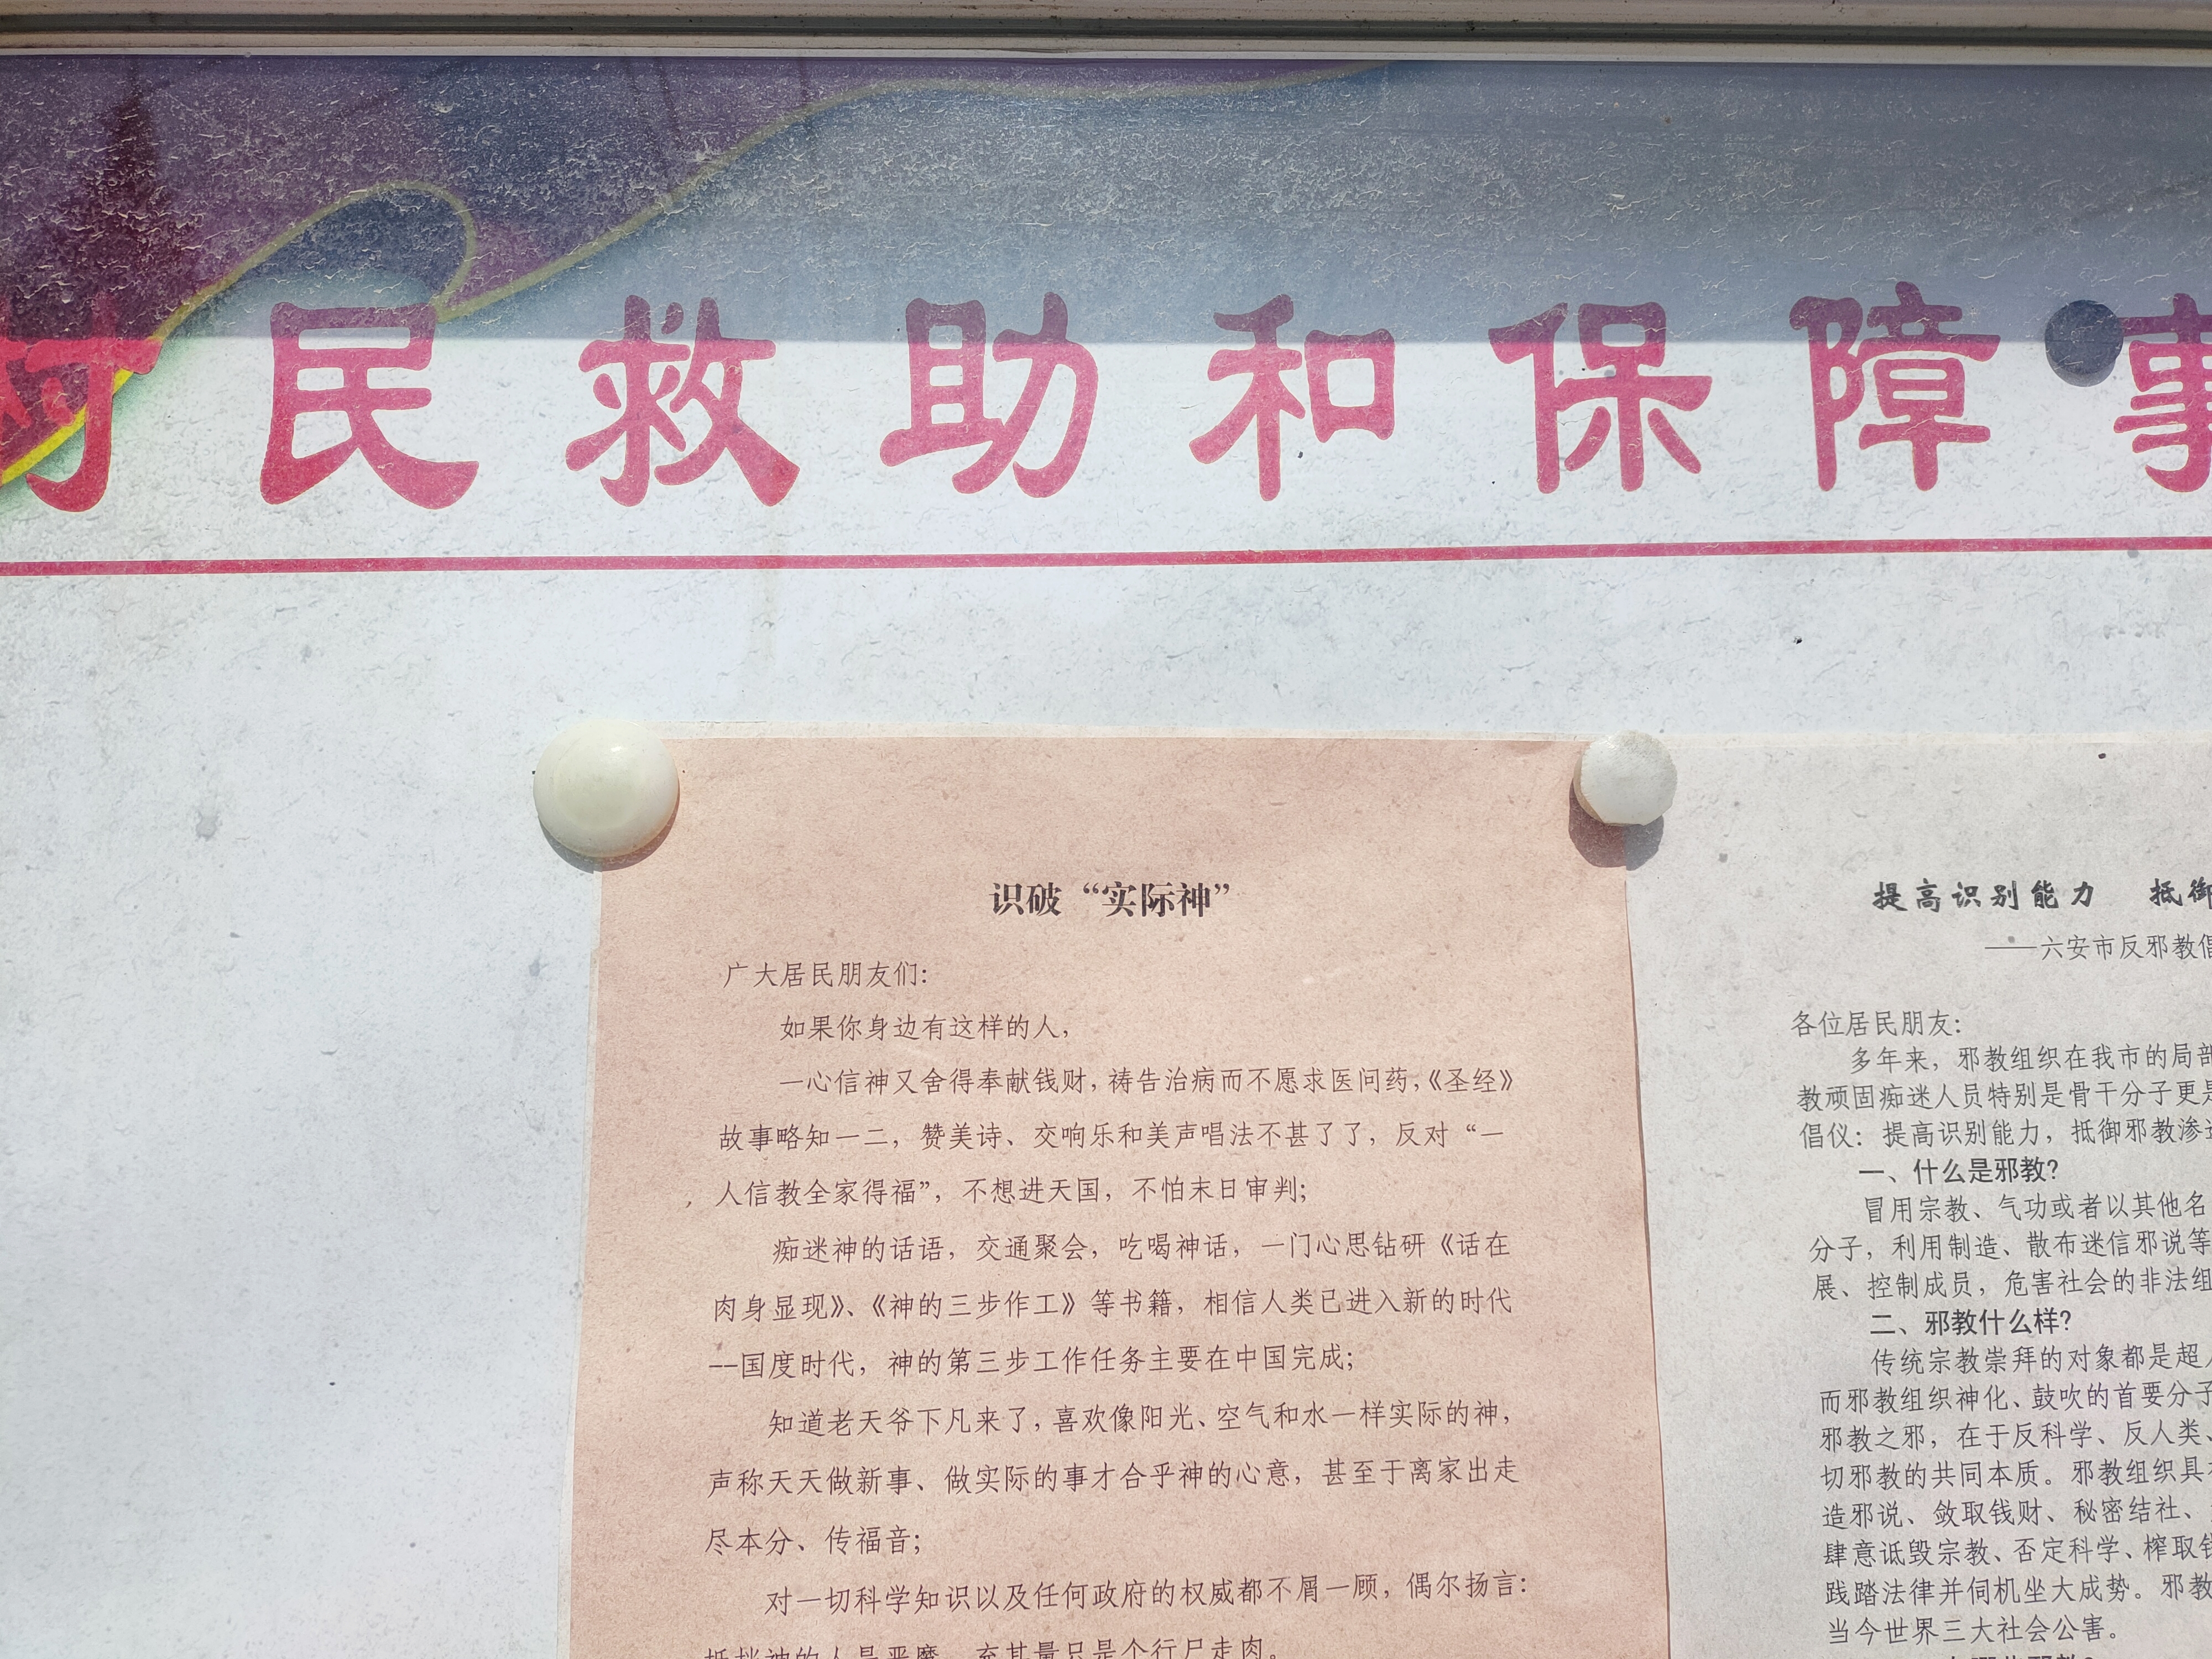 村民救助和保障事
识破“实际神”
广大居民朋友们：
如果你身边有这样的人，
一心信神又舍得奉献钱财，祷告治病而不愿求医问药，《圣经》
故事略知一二，赞美诗、交响乐和美声唱法不甚了了，反对“一
人信教全家得福”，不想进天国，不怕末日审判；
痴迷神的话语，交通聚会，吃喝神话，一门心思钻研《话在
肉身显现》、《神的三步作工》等书籍，相信人类已进入新的时代
--国度时代，神的第三步工作任务主要在中国完成；
知道老天爷下凡来了，喜欢像阳光、空气和水一样实际的神，
声称天天做新事、做实际的事才合乎神的心意，甚至于离家出走
尽本分、传福音；
对一切科学知识以及任何政府的权威都不屑一顾，偶尔扬言：
抵挡神的人是恶魔，充其量只是个行尸走肉。
提高识别能力 抵御
——六安市反邪教倡
各位居民朋友：
多年来，邪教组织在我市的局部
教顽固痴迷人员特别是骨干分子更是
倡仪：提高识别能力，抵御邪教渗透
一、什么是邪教？
冒用宗教、气功或者以其他名
分子，利用制造、散布迷信邪说等
展、控制成员，危害社会的非法组
二、邪教什么样？
传统宗教崇拜的对象都是超人
而邪教组织神化、鼓吹的首要分子
邪教之邪，在于反科学、反人类、
切邪教的共同本质。邪教组织具有
造邪说、敛取钱财、秘密结社、
肆意诋毁宗教、否定科学、榨取钱
践踏法律并伺机坐大成势。邪教
当今世界三大社会公害。